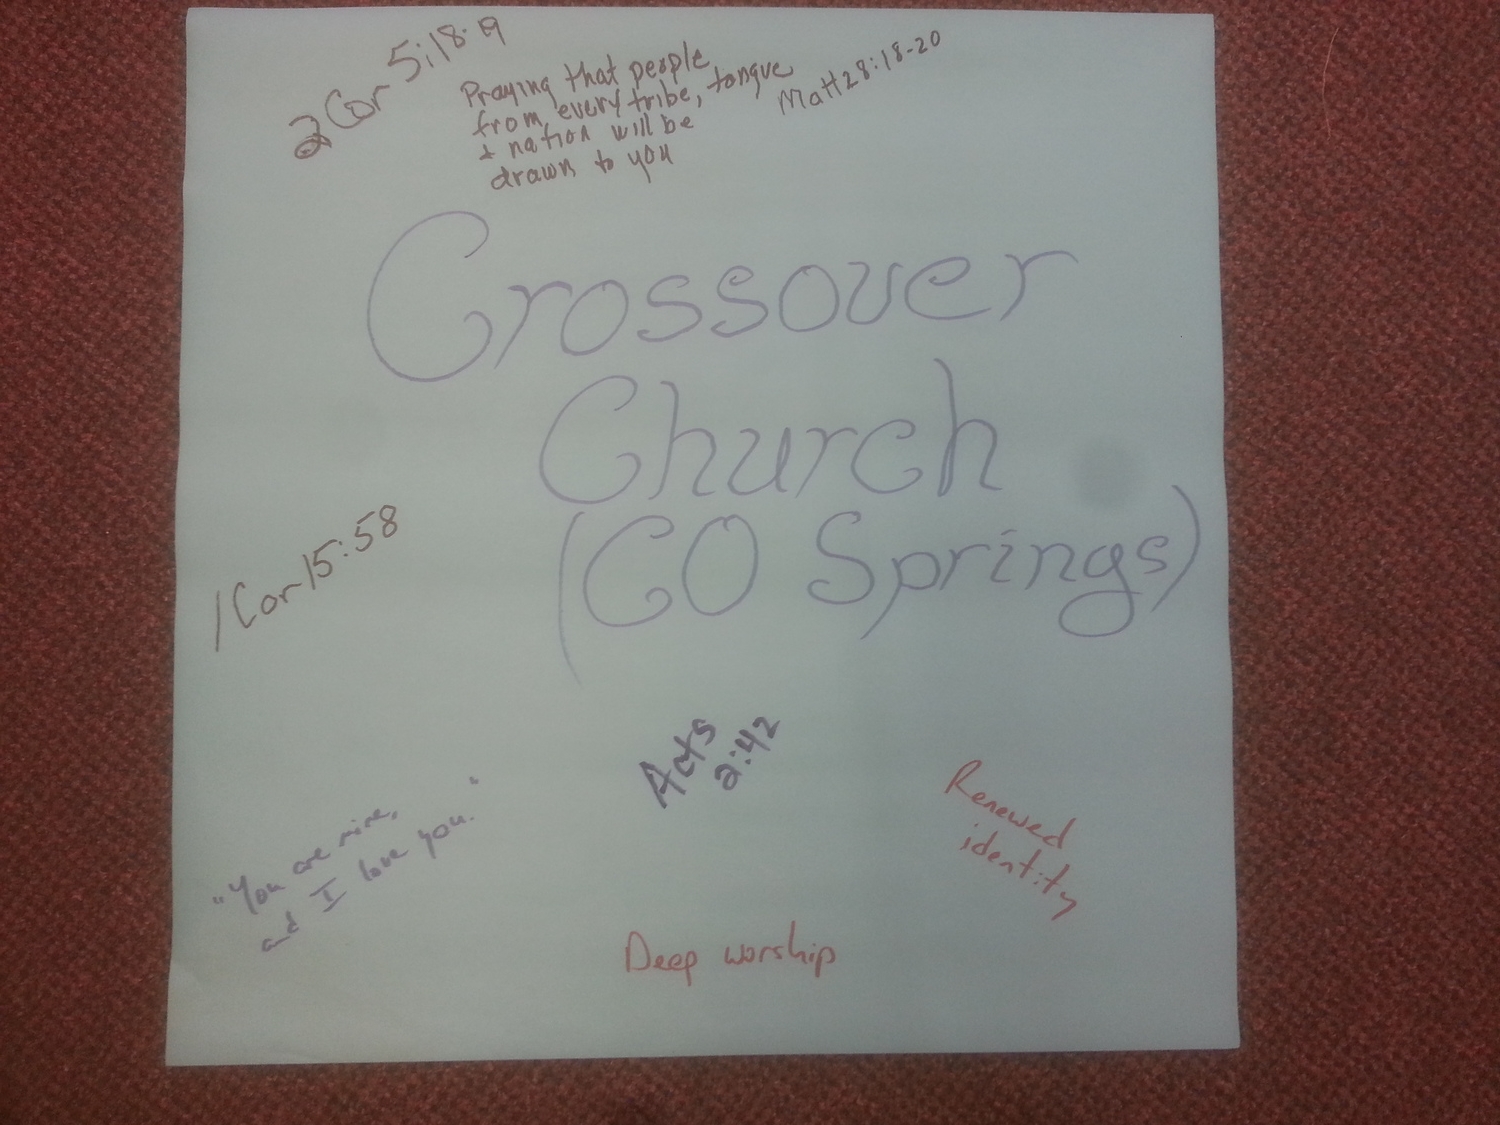 2 Cor 5:18-9
Praying that people
from every tribe, tongue
& nation will be
drawn to you
Matt 28:18-20
Crossover
Church
(CO Springs)
1 Cor 15:58
Acts
2:42
"You are mine,
and I love you."
Renewed
identity
Deep worship